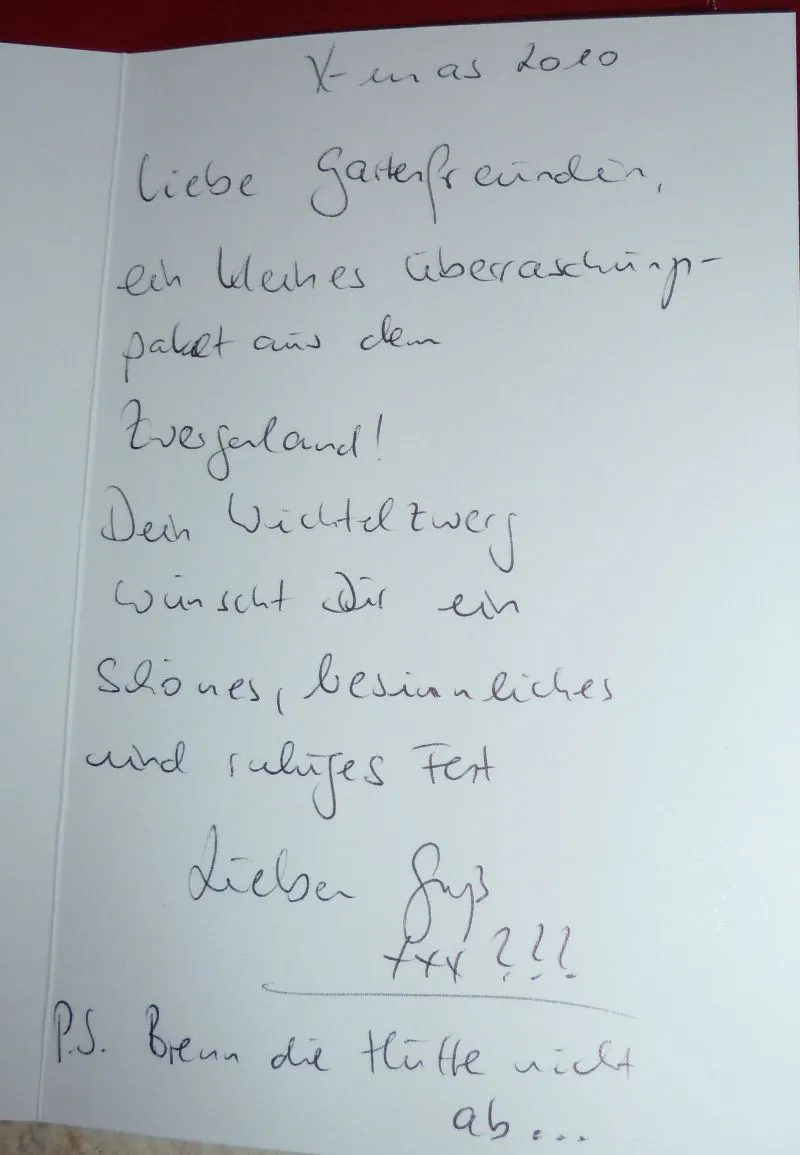 X-mas 2010
Liebe Gartenfreundin,
ein kleines Überraschungs-
paket aus dem
Zwergenland!
Dein Wichtelzwerg
wünscht Dir ein
schönes, besinnliches
und ruhiges Fest
Lieber Gruß
xxx???
P.S. Brenn die Hütte nicht
ab...